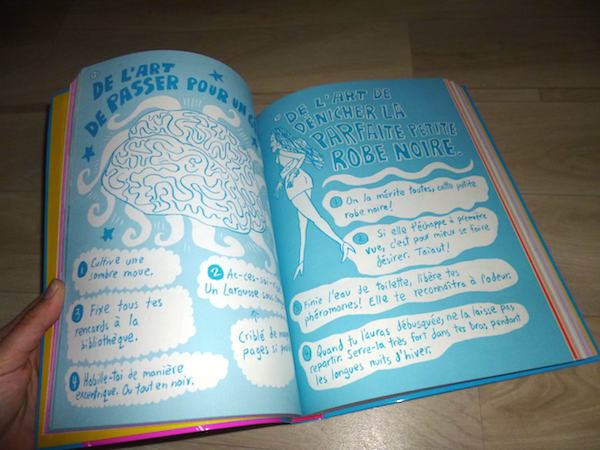 DE L'ART
DE PASSER POUR UN
1 Cultive une
sombre moue.
2 Ac-ces-soi-
Un Larousse sous
3 Fixe tous tes
rencards à la
bibliothèque.
Criblé de
pages si
4 Habille-toi de manière
excentrique. Ou tout en noir.
DE L'ART DE
DÉNICHER LA
PARFAITE PETITE
ROBE NOIRE.
1 On la mérite toutes, cette petite
robe noire!
2 Si elle t'échappe à première
vue, c'est pour mieux se faire
désirer. Taïaut!
3 Finie l'eau de toilette, libère tes
phéromones! Elle te reconnaîtra à l'odeur.
4 Quand tu l'auras débusquée, ne la laisse pas
repartir. Serre-la très fort dans tes bras pendant
les longues nuits d'hiver.